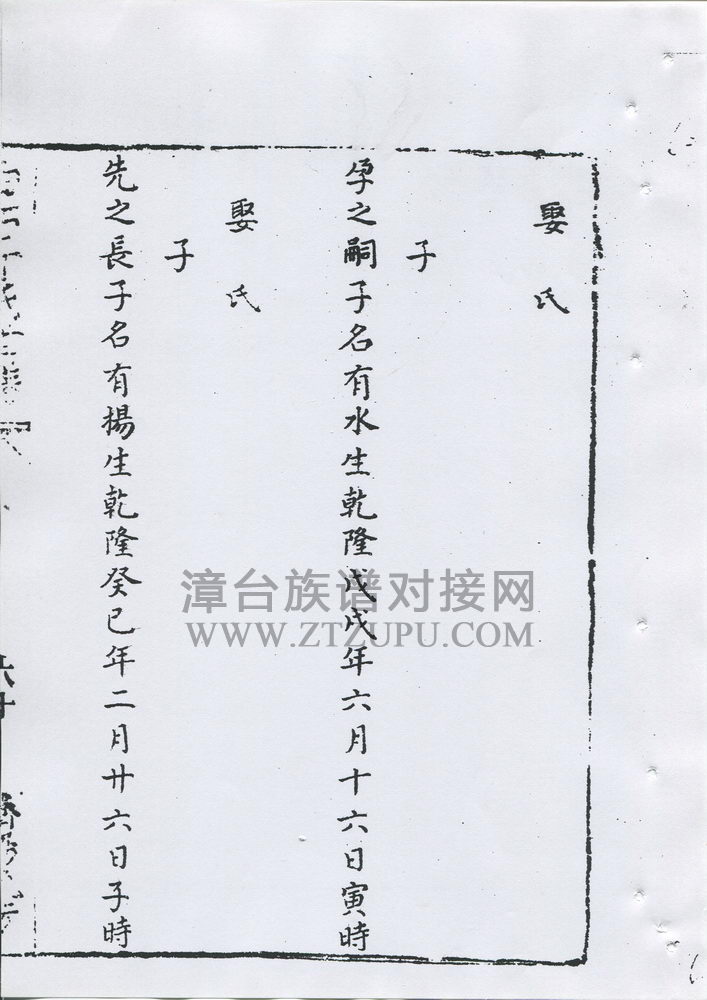 娶氏
子
孕之嗣子名有水生乾隆戊戌年六月十六日寅時
娶氏
子
先之長子名有楊生乾隆癸巳年二月廿六日子時
六十
漳台族谱对接网
WWW.ZTZUPU.COM